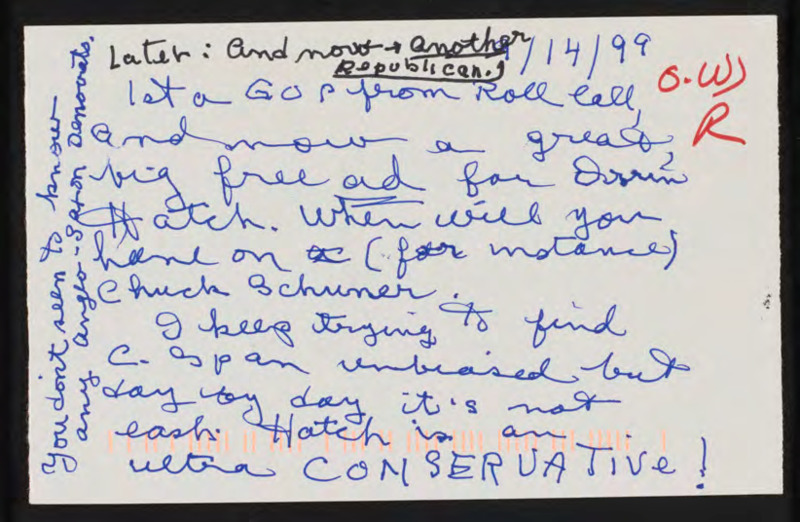 Later: and now → another
Republican.
9/14/99
O.W)
R
1st a GOP from Roll Call,
and now a great,
big free ad for Orrin
Hatch. When will you
have on (for instance)
Chuck Schumer.
I keep trying to find
C-Span unbiased but
day by day it's not
easy. Hatch is an
ultra CONSERVATIVE!
You don't seem to know
any anglo-saxon Democrats.